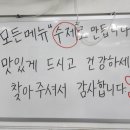 모든메뉴 "수제"로 만듭니다
맛있게 드시고 건강하세
찾아주셔서 감사합니다